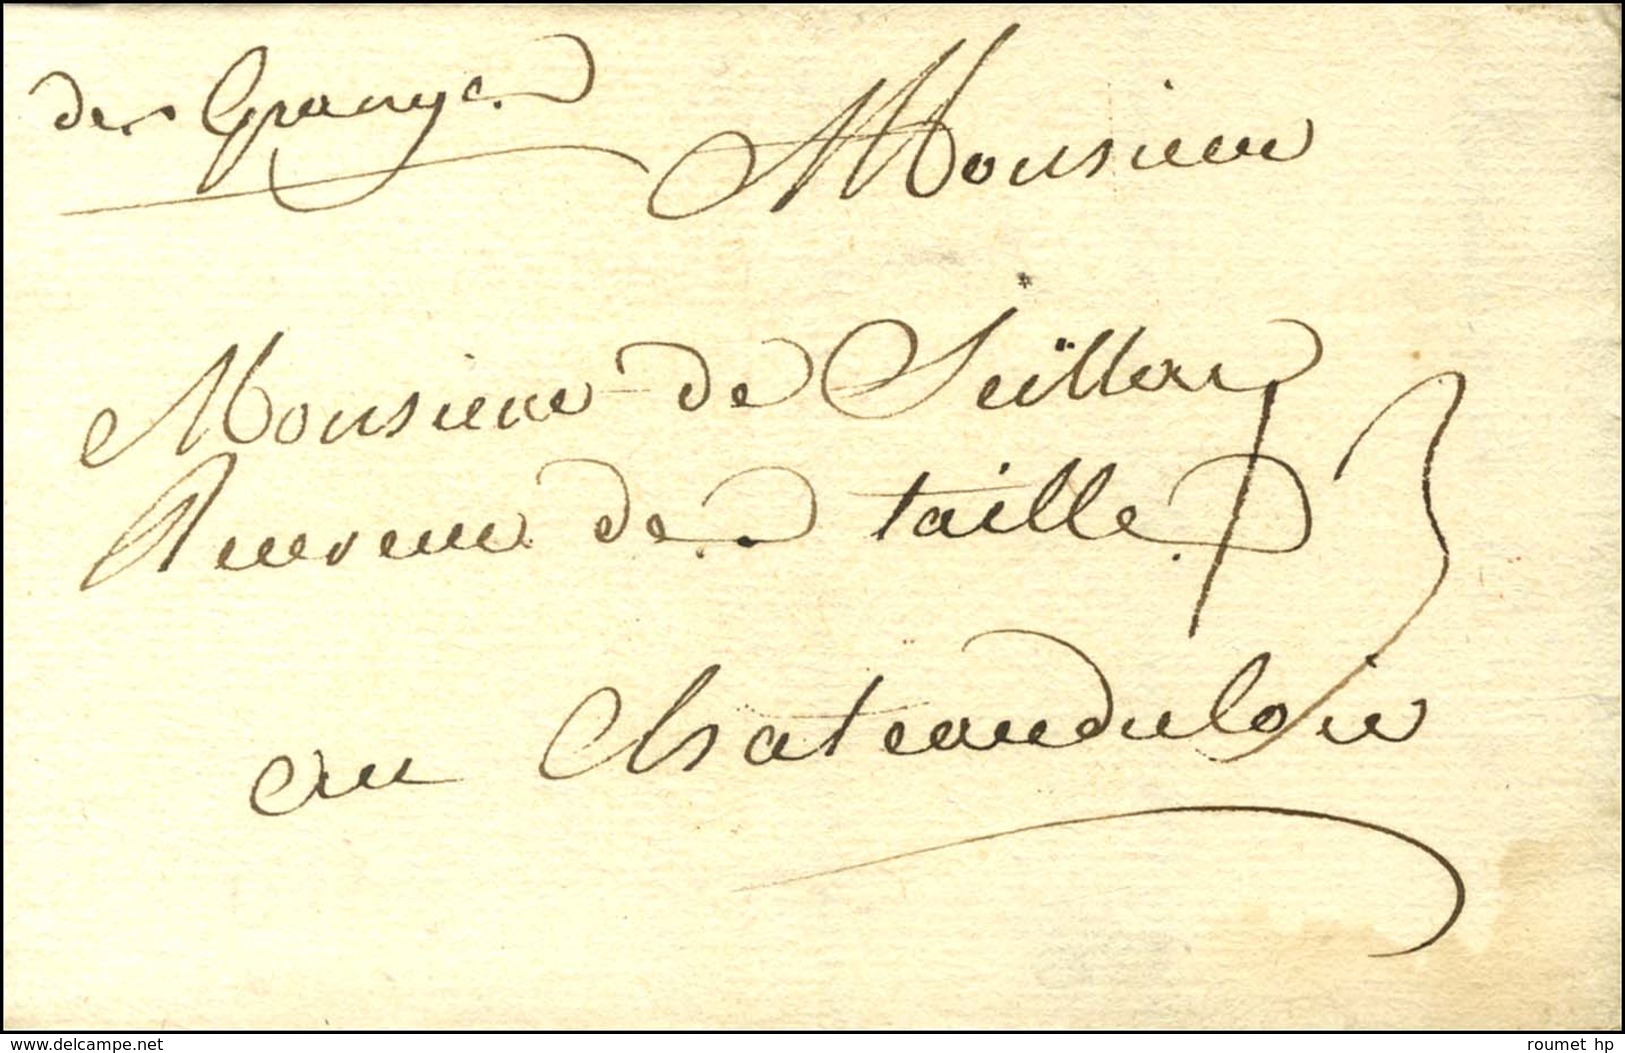 des Granges
Monsieur
Monsieur de Seïllac
Receveur de taille
13
au Chateauduloir
www.delcampe.net
roumet hp